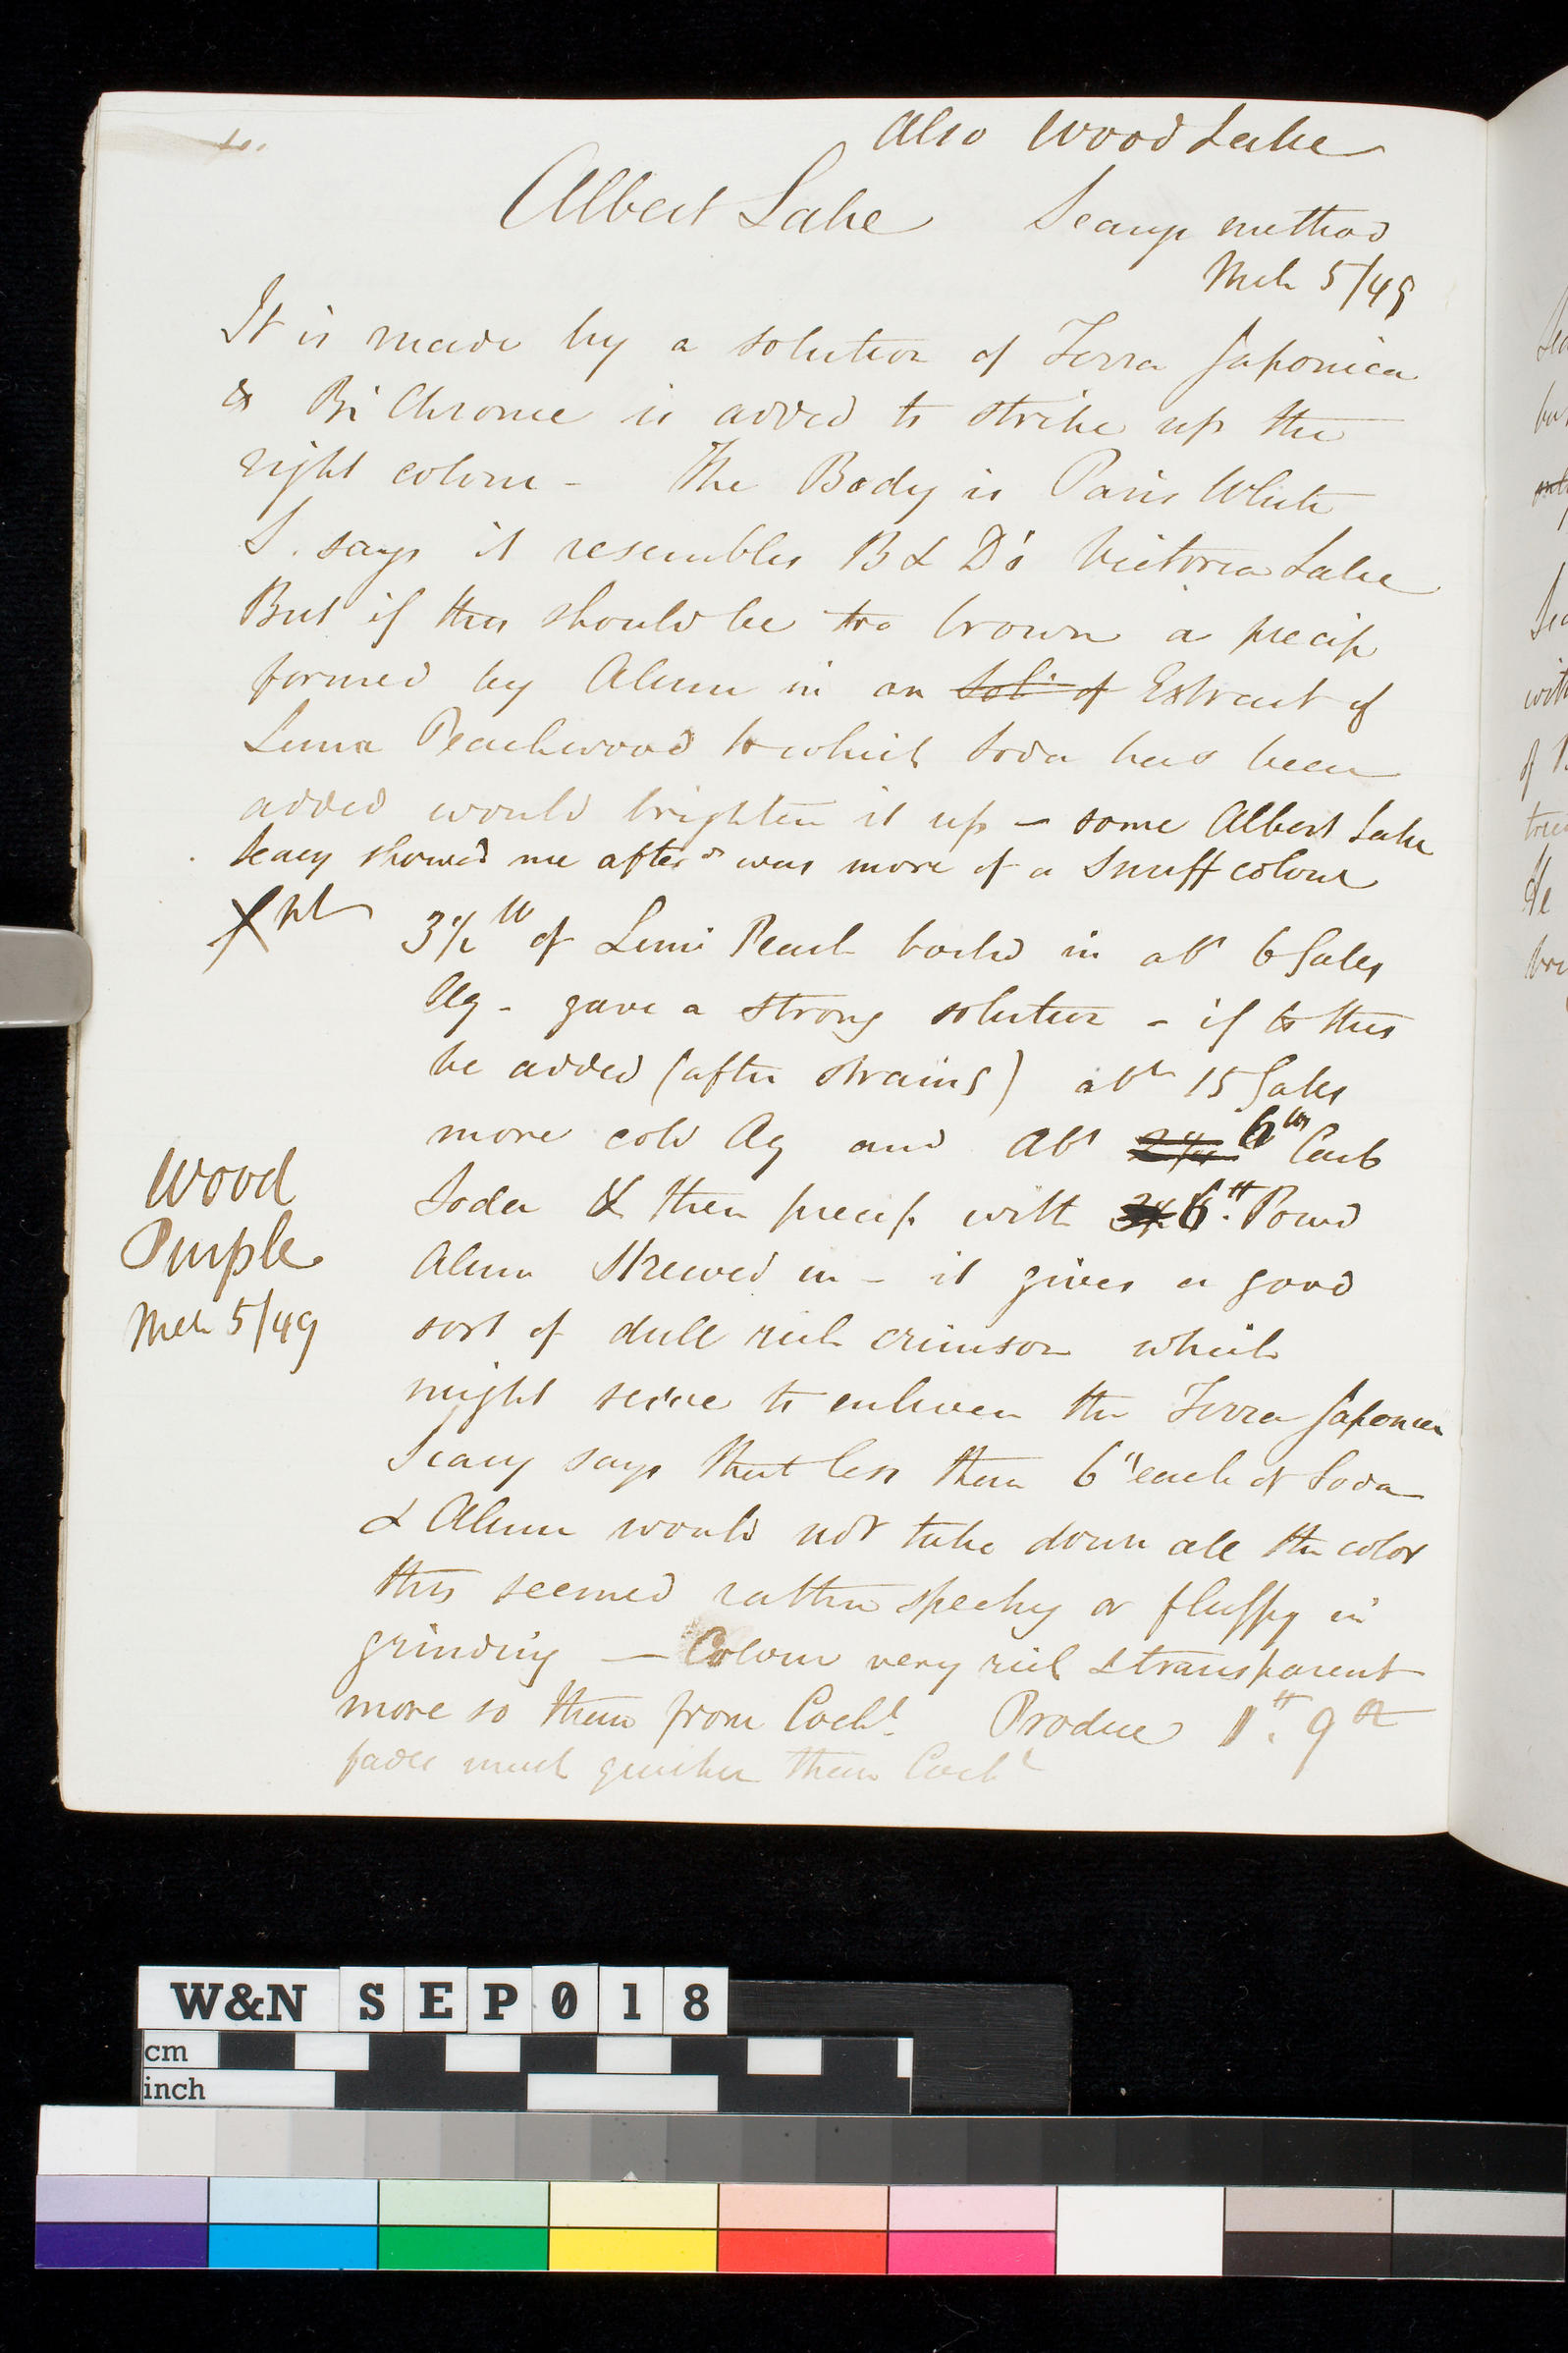 10.
Also Wood Lake
Albert Lake Seary's method
Mch 5/49
It is made by a solution of Terra Japonica
& Bi Chrome is added to strike up the
right colour - The Body is Paris White
S. says it resembles B & D's Victoria Lake
But if this should be too brown a precip
formed by Alum in an Sol. of Extract of
Lima Peachwood to which Soda has been
added would brighten it up - some Albert Lake
Seary showed me after^ds was more of a Snuff colour
3 1/2 lb of Lima Peach boiled in abt 6 Galls
Aq - gave a strong solution - if to this
be added (after straing) abt 15 Galls
more cold Aq and abt 6 lbs Carb
Wood
Purple
Mch 5/49
Soda & then precip. with 6 lb. Powd
Alum Strewed in - it gives a good
sort of dull rich crimson which
might serve to enliven the Terra Japonica
Seary says that less than 6 lb each of Soda
& Alum would not take down all the color
this seemed rather specky or fluffy in
grinding - Colour very rich & transparent
more so than from Cochl. Produce 1 lb. 9 oz
fades much quicker than Cochl
W&N SEP018
cm
inch